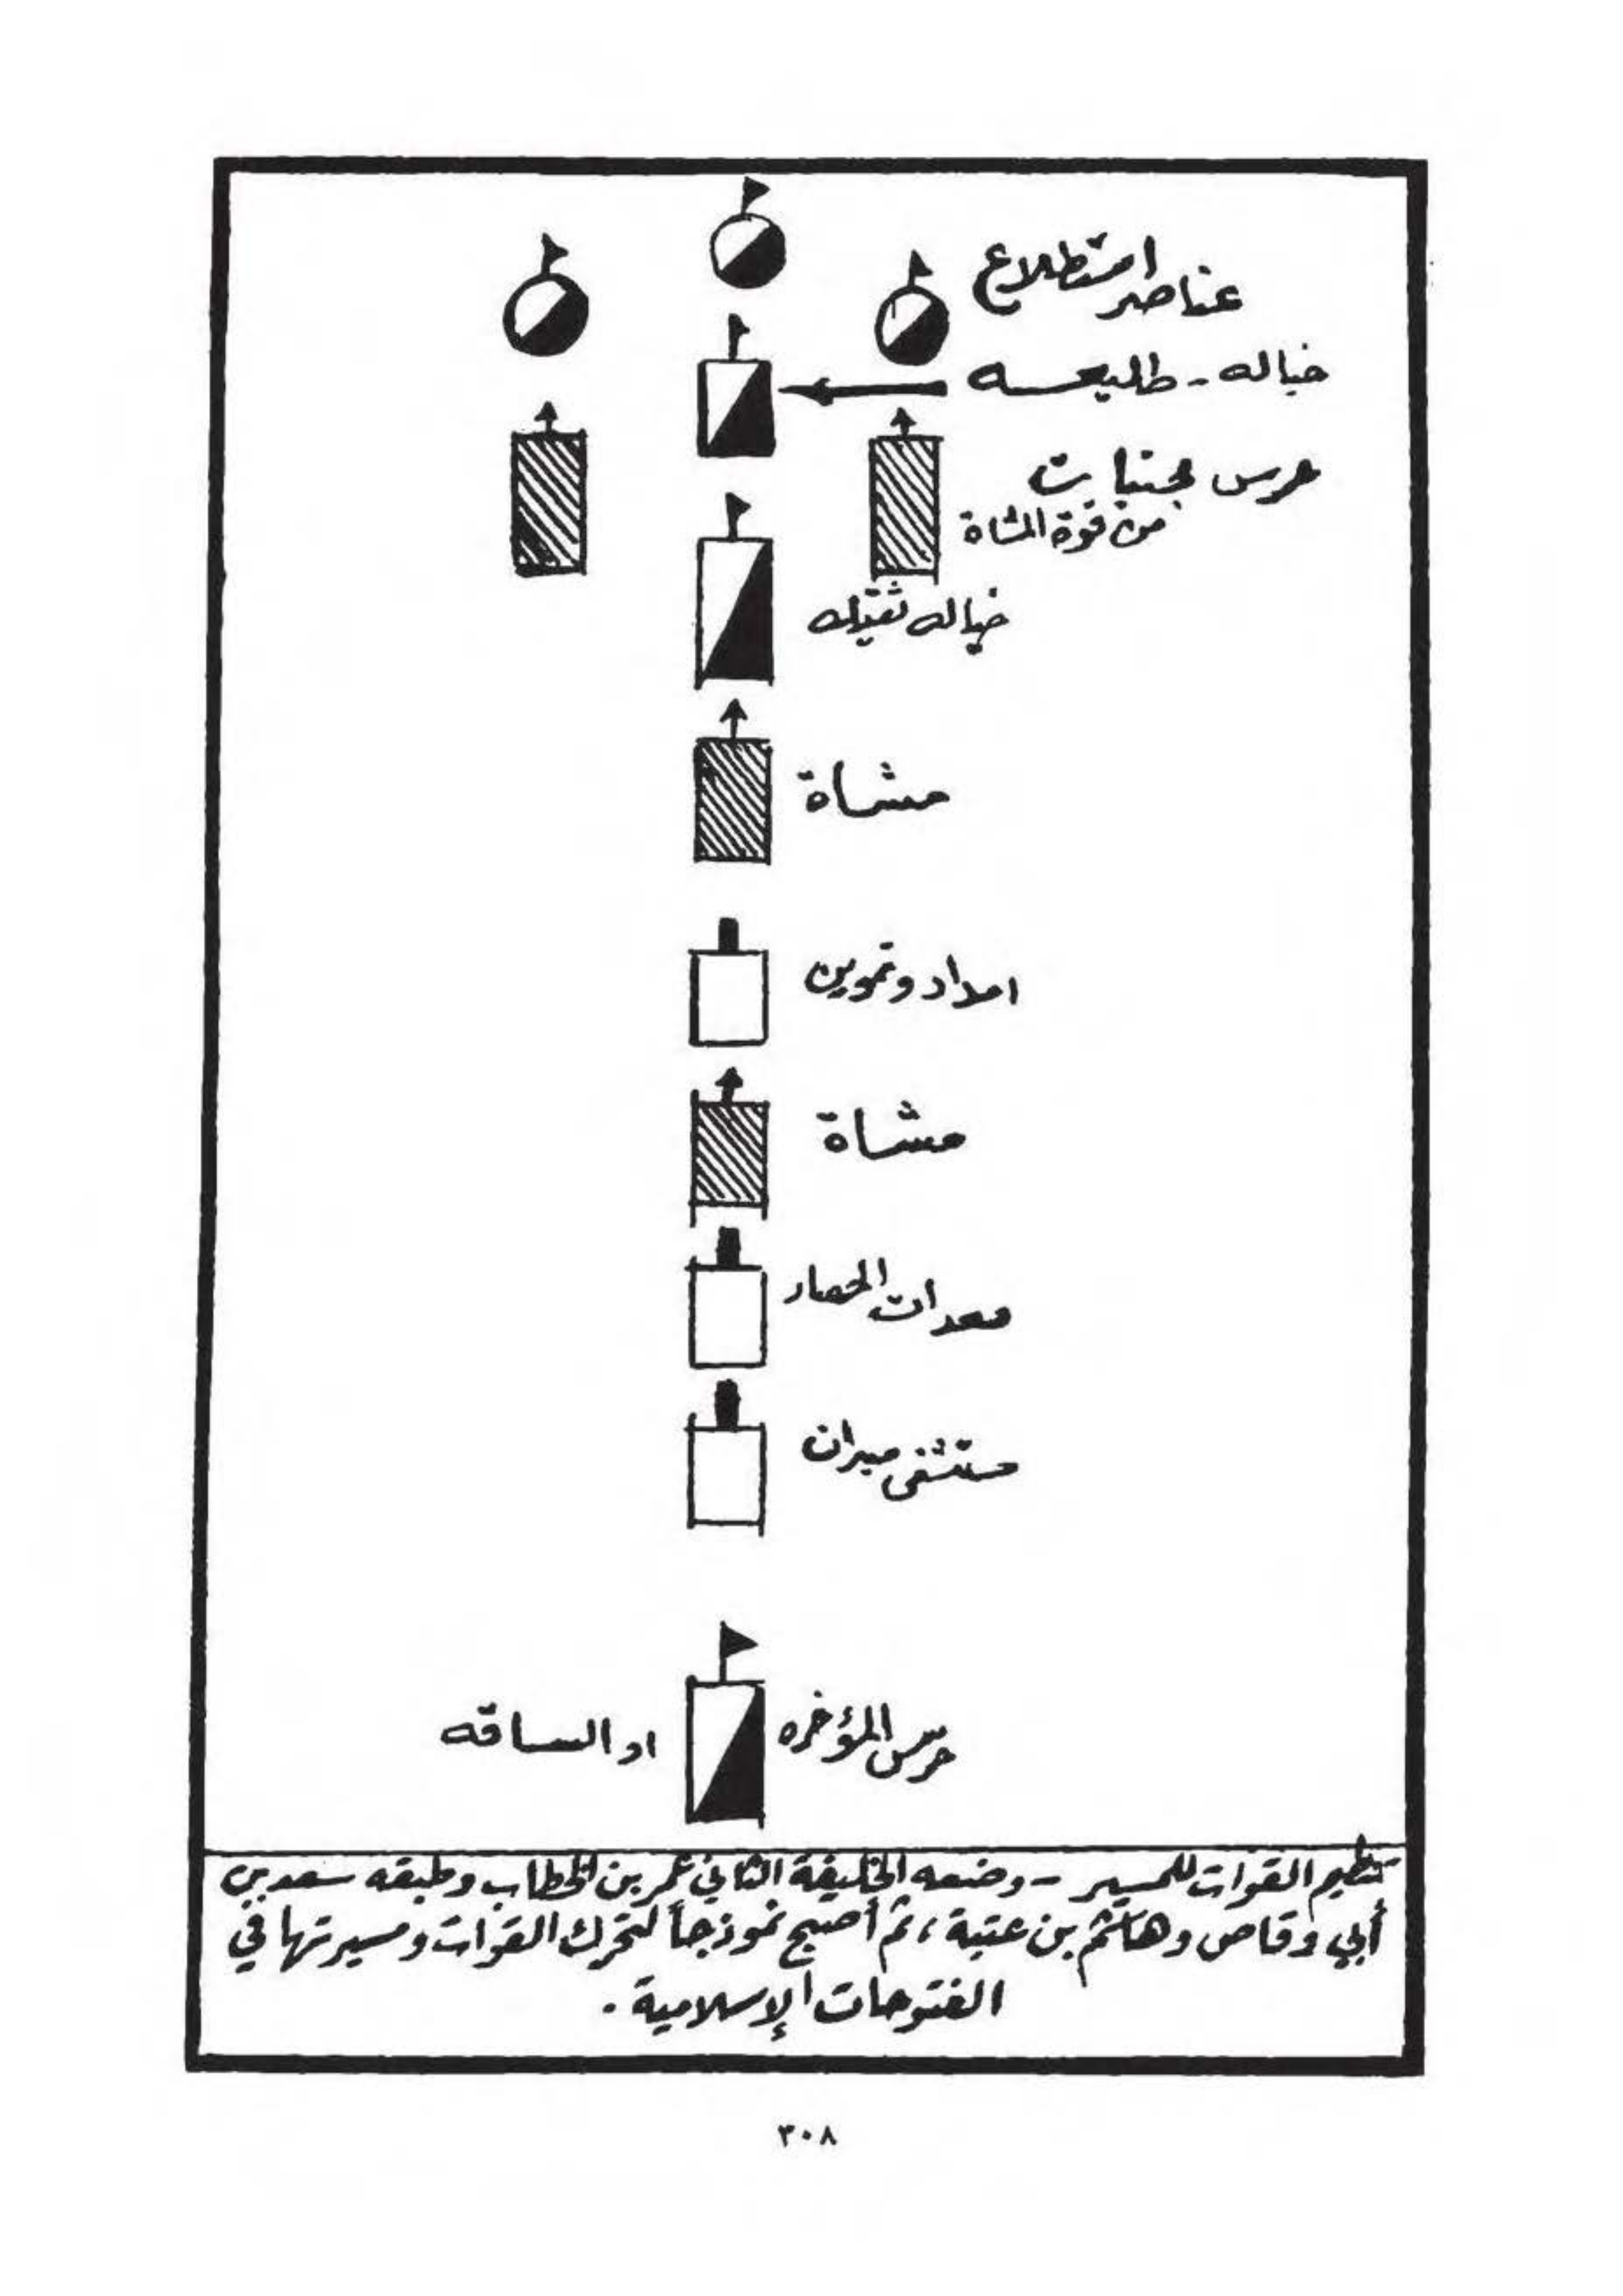 عناصر استطلاع
خياله - طليعه
حرس مجنبات
من قوة المشاة
خياله ثقيله
مشاة
امداد وتموين
مشاة
معدات الحصار
مستشفى ميدان
حرس المؤخره
او الساقه
تنظيم القوات للمسير - وضعه الخليفة الثاني عمر بن الخطاب وطبقه سعد بن
أبي وقاص وهاشم بن عتبة، ثم أصبح نموذجاً لتحرك القوات ومسيرتها في
الفتوحات الإسلامية.
٣٠٨